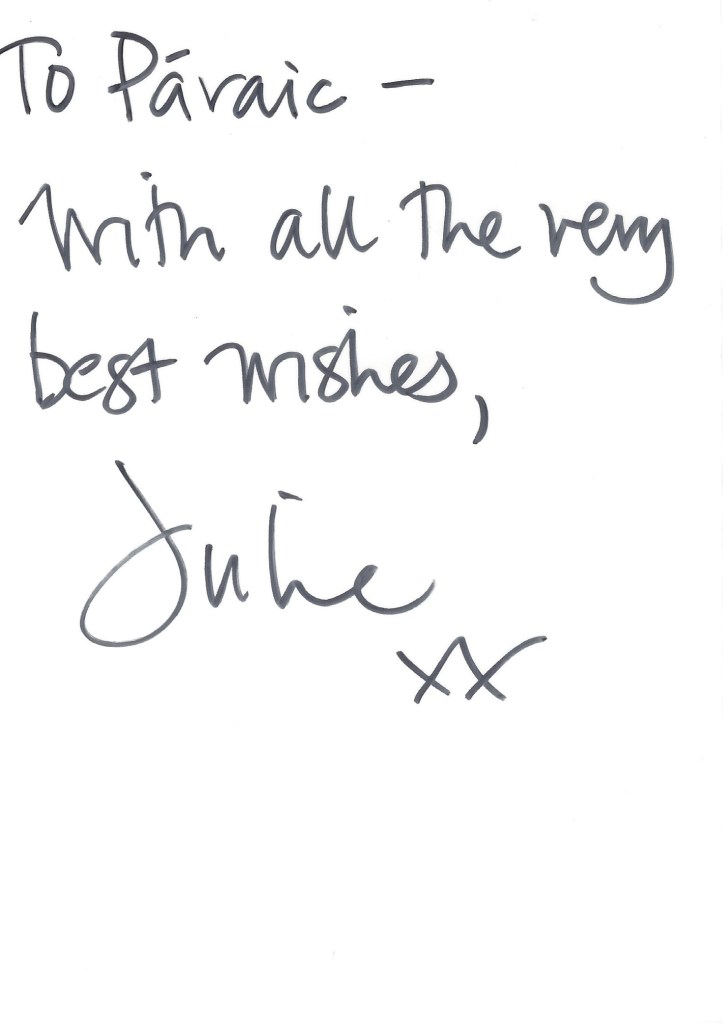 To Páraic –
With all the very
best wishes,
Julie
xx